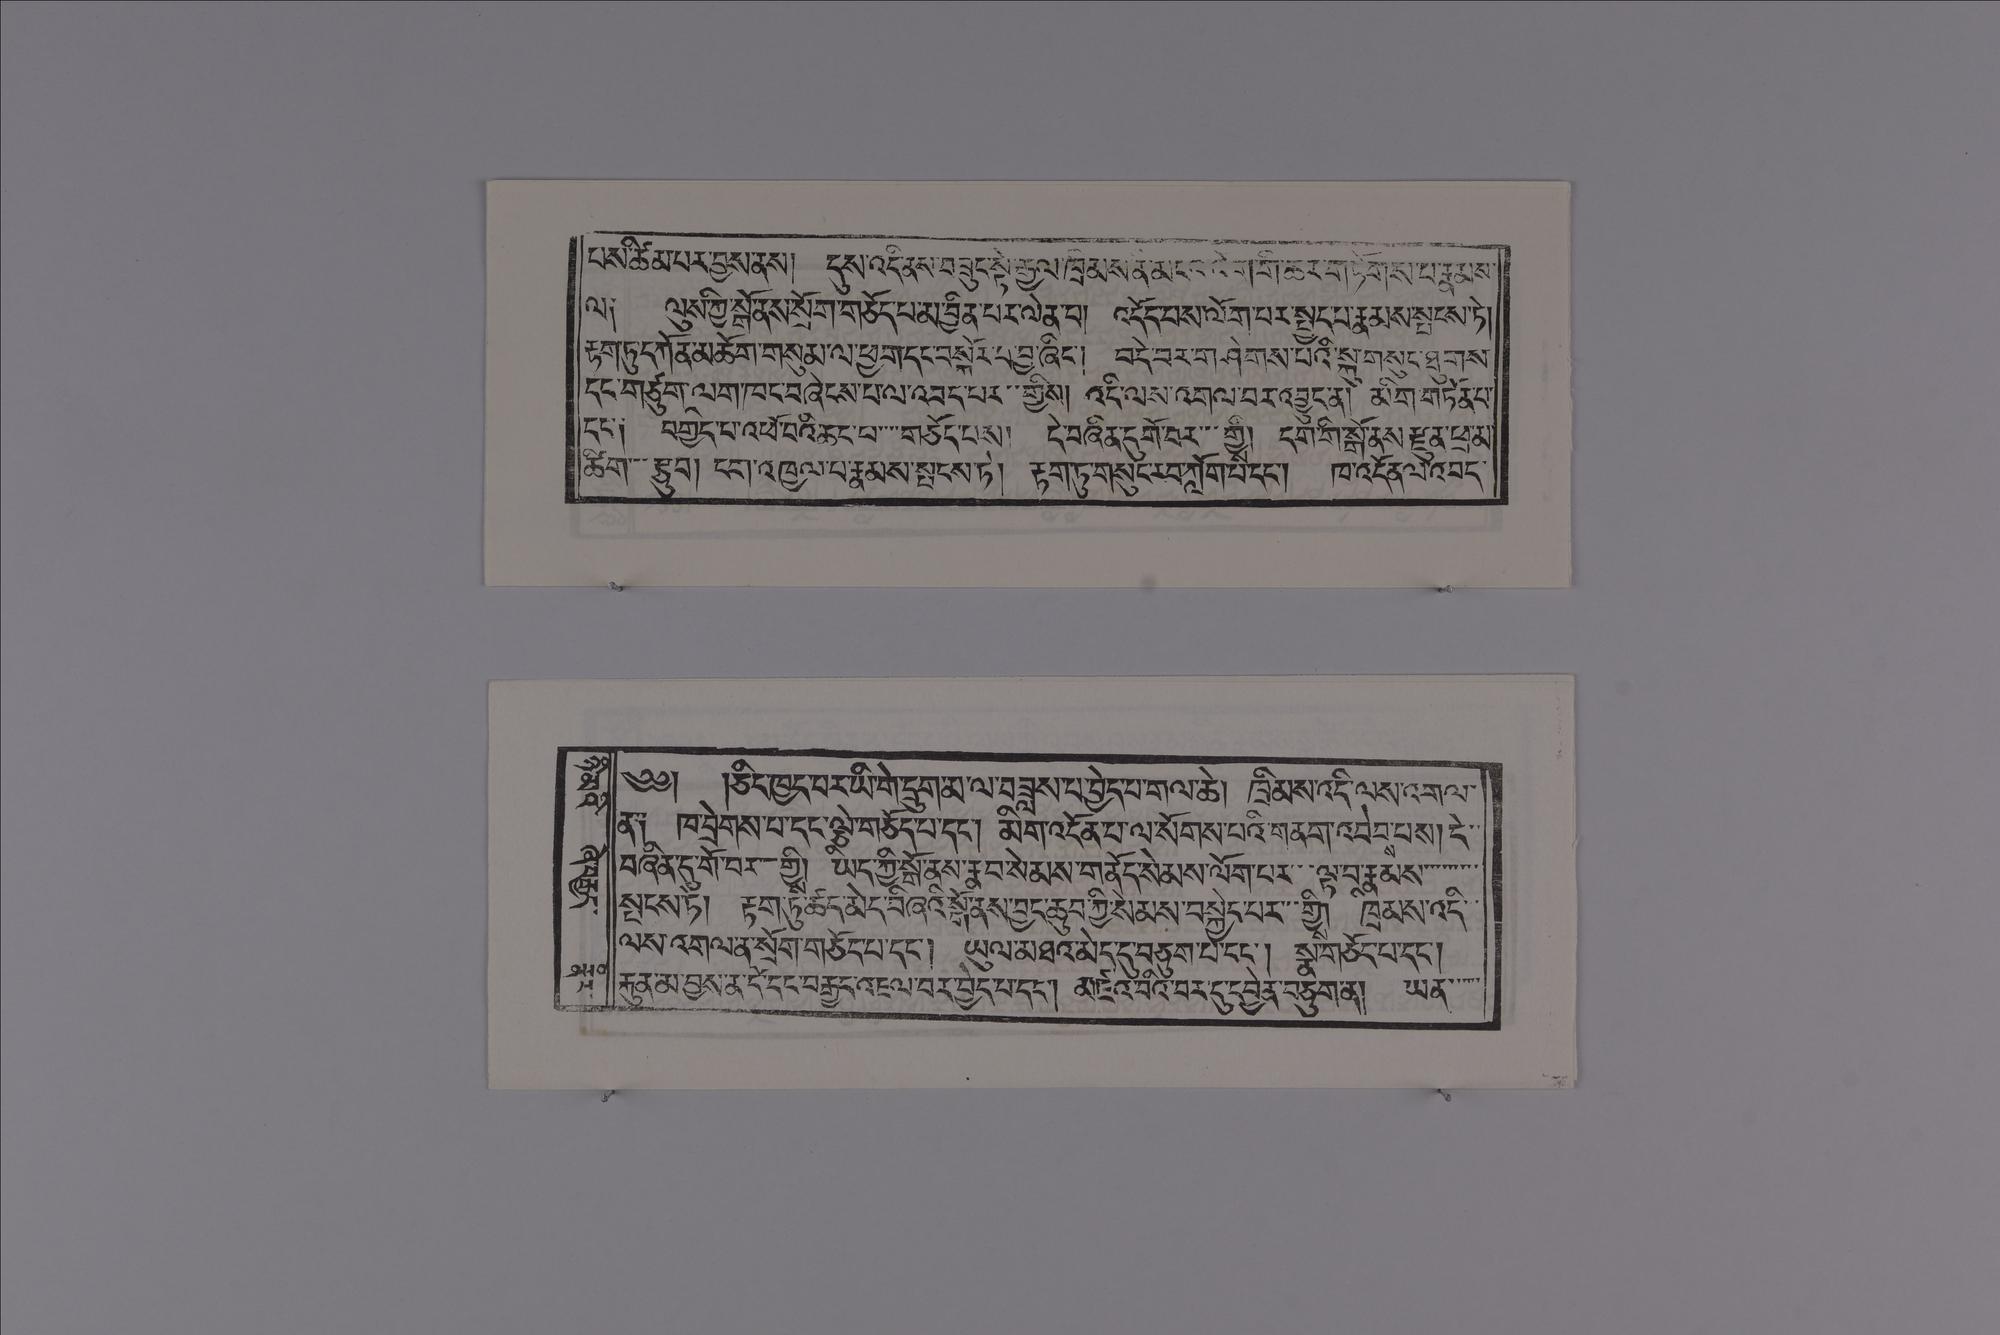 པས་ཚིམ་པར་བྱས་ནས། དུས་འདི་ནས་བཟུང་སྟེ་རྒྱལ་ཁྲིམས་ནི་མ་ གི་ཆེར་ག་ཏོགས་པ་རྣམས་
ལ། ལུས་ཀྱི་སྒོ་ནས་སྲོག་གཅོད་པ་མ་བྱིན་པར་ལེན་པ། འདོད་པས་ལོག་པར་སྤྱད་པ་རྣམས་སྤངས་ཏེ།
རྟག་ཏུ་དཀོན་མཆོག་གསུམ་ལ་ཕྱག་དང་བསྐོར་པ་བྱ་ཞིང་། བདེ་བར་གཤེགས་པའི་སྐུ་གསུང་ཐུགས་
དང་གཙུག་ལག་ཁང་བཞེངས་པ་ལ་འབད་པར་གྱིས། འདི་ལས་འགལ་བར་འབྱུང་ན། མིག་གཏོན་པ་
དང་། བགྱིད་པ་འཕོ་བའི་རྐང་པ་གཅོད་པས། དེ་བཞིན་དུ་གོ་བར་གྱི། དགེ་གི་སྒོ་ནས་རྫུན་ཕྲ་མ་
ཚིག་རྩུབ། ངག་འཁྱལ་པ་རྣམས་སྤངས་ཏེ། རྟག་ཏུ་གསུང་རབ་ཀློག་པ་དང་། ཁ་འདོན་ལ་འབད་
༄༅། །ཅིང་ཁྱད་པར་ཡི་གེ་དྲུག་མ་ལ་བཟླས་པ་བྱེད་པ་གལ་ཆེ། ཁྲིམས་འདི་ལས་འགལ་
ན། ཁ་དྲེགས་པ་དང་ལྕེ་གཅོད་པ་དང་། མིག་འདོན་པ་ལ་སོགས་པའི་གནག་འབེབ་པས། དེ་
བཞིན་དུ་གོ་བར་གྱི། ཡིད་ཀྱི་སྒོ་ནས་རྣབ་སེམས་གནོད་སེམས་ལོག་པར་ལྟ་བ་རྣམས་
སྤངས་ཏེ། རྟག་ཏུ་ཚད་མེད་བཞིའི་སྒོ་ནས་བྱང་ཆུབ་ཀྱི་སེམས་བསྐྱེད་པར་གྱི། ཁྲིམས་འདི་
ལས་འགལ་ན་སྲོག་གཅོད་པ་དང་། ཡུལ་མཐའ་མེད་དུ་བཅུག་པ་དང་། སྣ་གཅོད་པ་དང་།
རྐུན་མ་བྱས་ན་དོ་དང་བརྒྱད་འཇལ་བར་བྱེད་པ་དང་། མཛའ་བོའི་བར་དུ་དབྱེན་བཅུག་ན། ཡན་